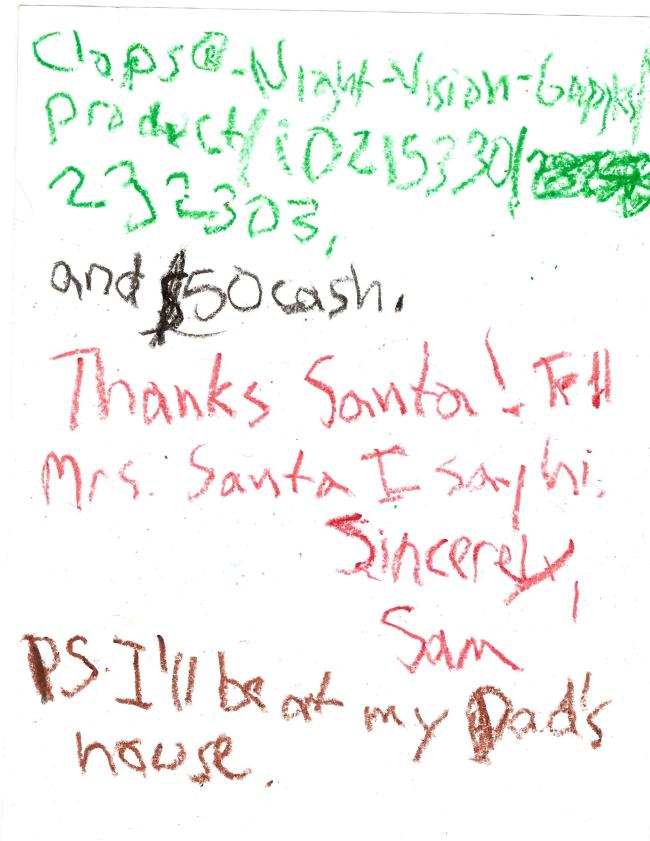 Clops@-Night-Vision-Goggles/
Product/iD215330/
232303,
and $50 cash.
Thanks Santa! Tell
Mrs. Santa I say hi.
Sincerely,
Sam
PS I'll be at my Dad's
house.